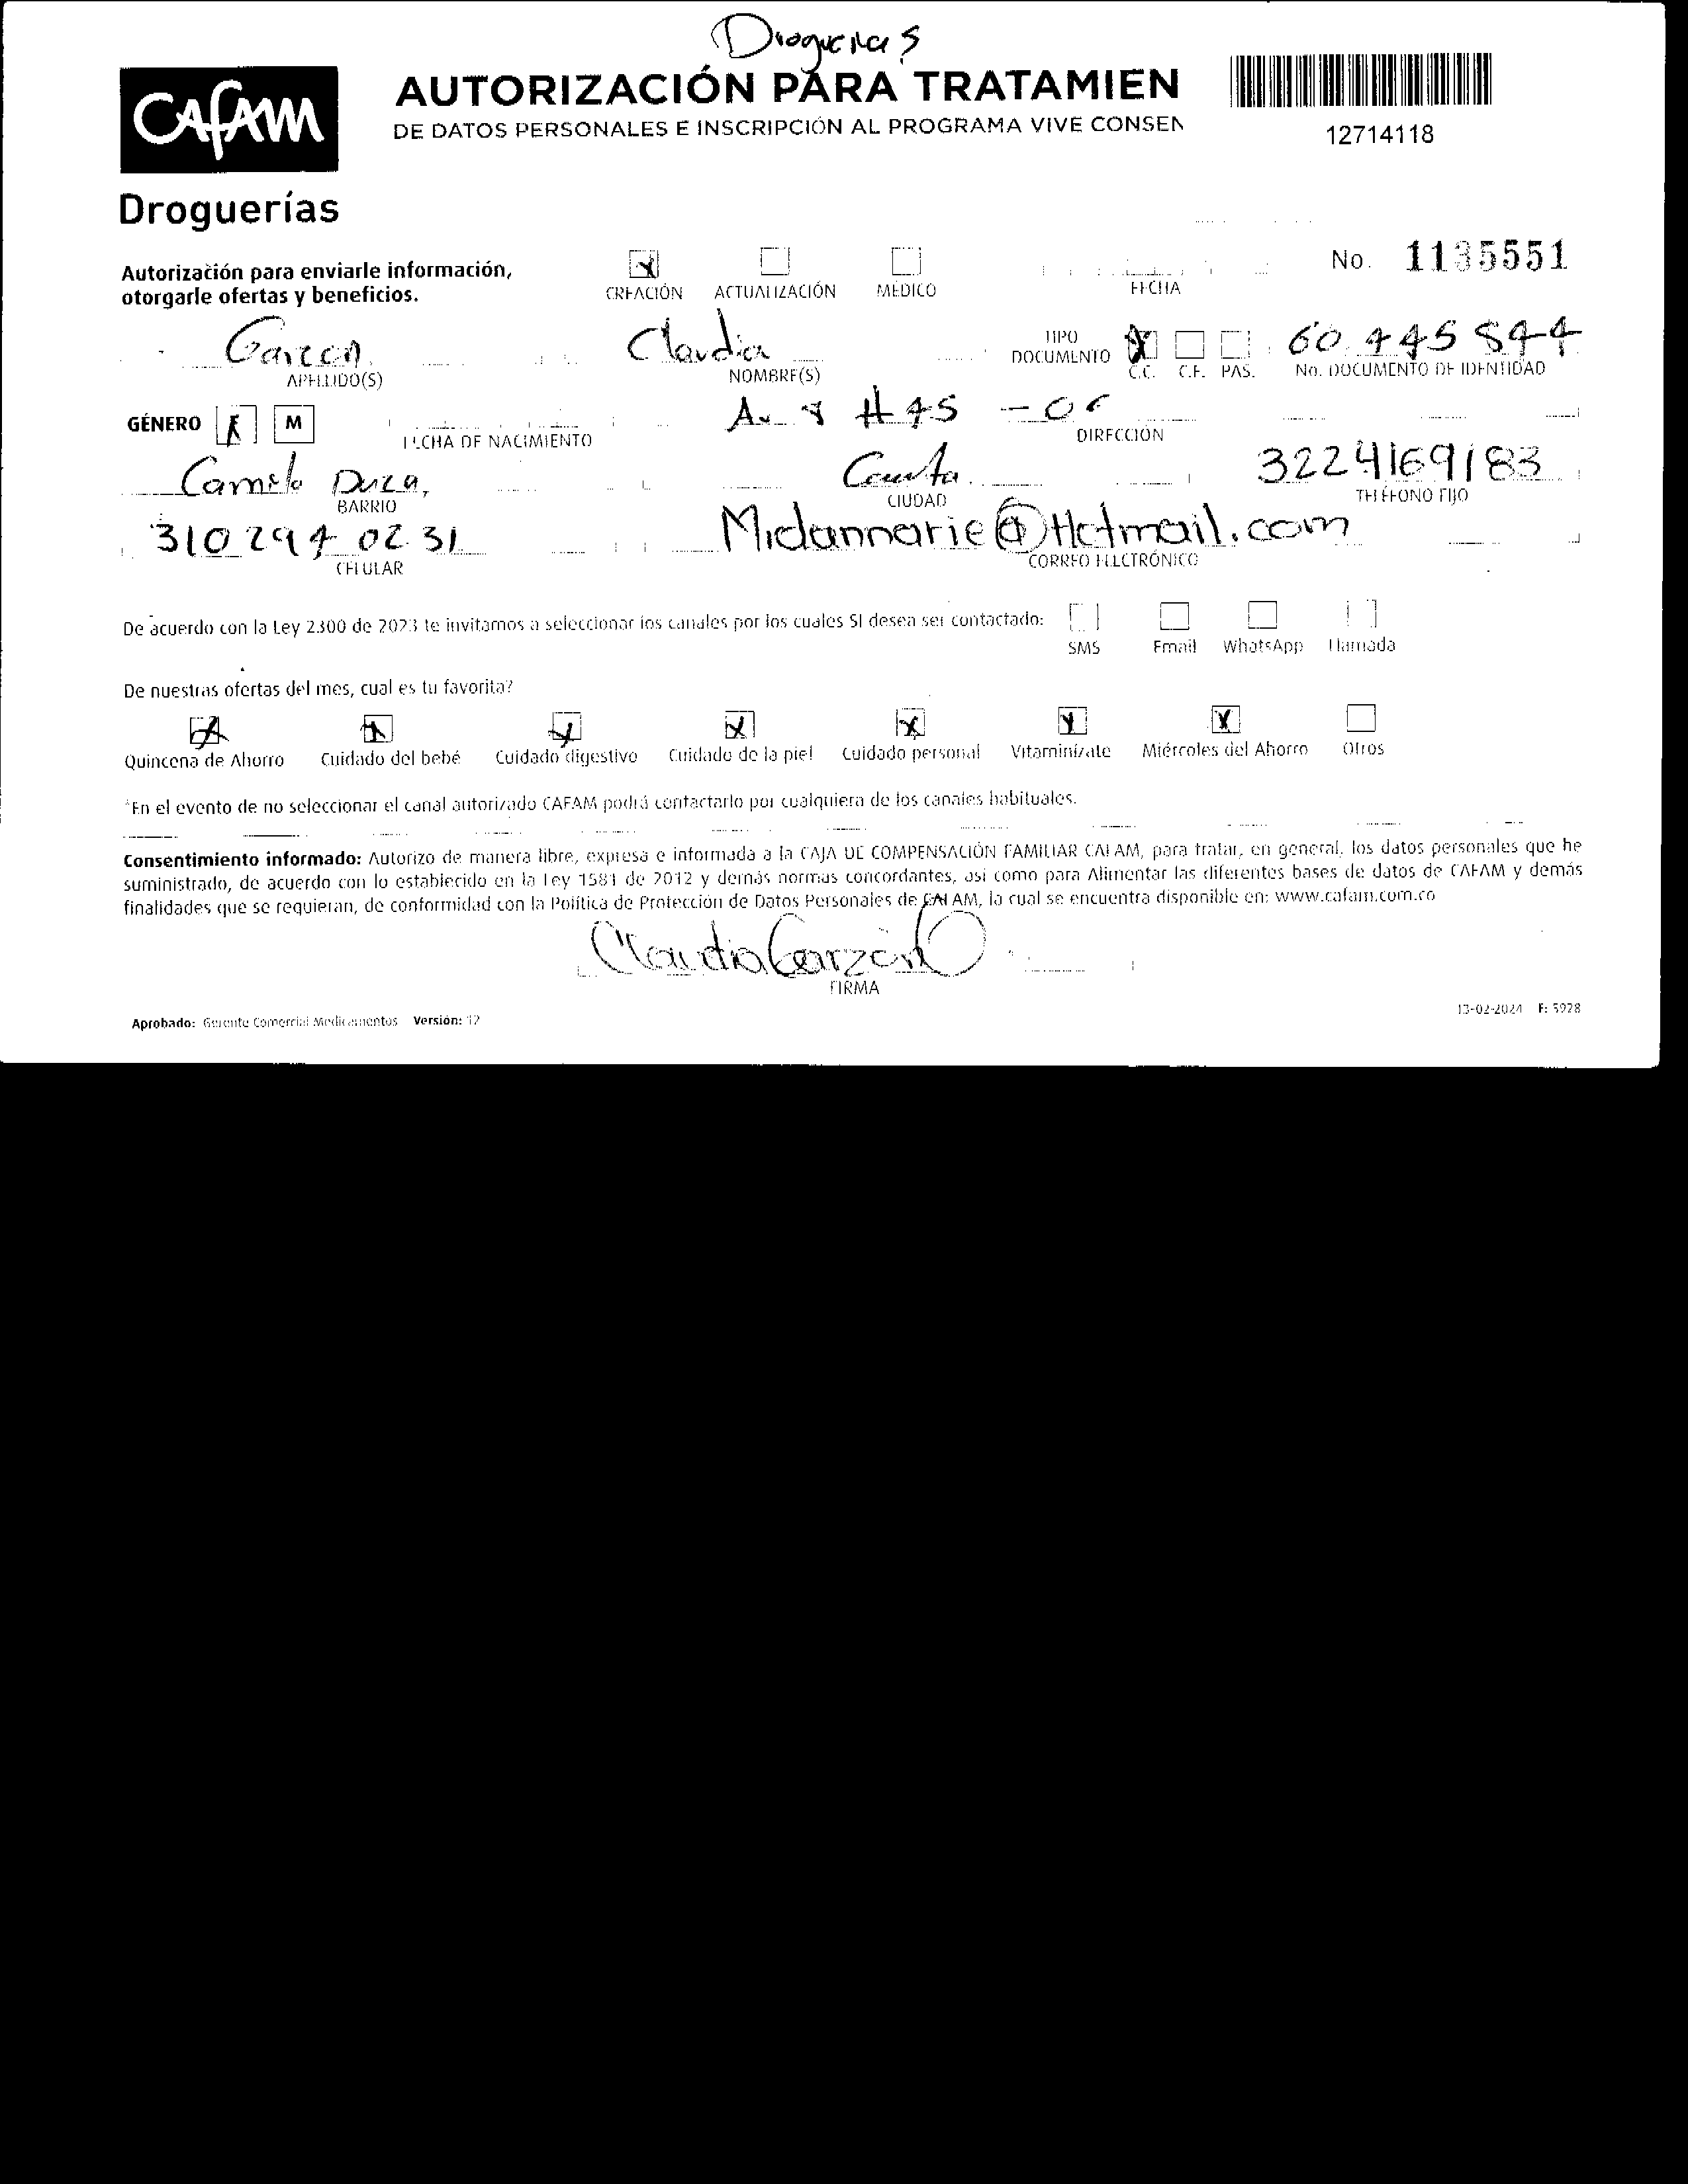 Droguerias
CAFAM
AUTORIZACIÓN PARA TRATAMIEN
DE DATOS PERSONALES E INSCRIPCIÓN AL PROGRAMA VIVE CONSEN
12714118
Droguerías
Autorización para enviarle información,
otorgarle ofertas y beneficios.
CREACIÓN ACTUALIZACIÓN MÉDICO
FECHA
No. 1135551
Garzon Claudia
TIPO DOCUMENTO
C.C. C.E. PAS.
60.445844
APELLIDO(S) NOMBRE(S) No. DOCUMENTO DE IDENTIDAD
GÉNERO M
FECHA DE NACIMIENTO
#45 - 06
DIRECCIÓN
Camilo Daza, 3224169183
BARRIO CIUDAD TELÉFONO FIJO
310 294 0231 Midannarie@Hotmail.com
CELULAR CORREO ELECTRÓNICO
De acuerdo con la Ley 2300 de 2023 te invitamos a seleccionar los canales por los cuales SI desea ser contactado:
SMS Email WhatsApp Llamada
De nuestras ofertas del mes, cual es tu favorita?
Quincena de Ahorro Cuidado del bebé Cuidado digestivo Cuidado de la piel Cuidado personal Vitaminízate Miércoles del Ahorro Otros
*En el evento de no seleccionar el canal autorizado CAFAM podrá contactarlo por cualquiera de los canales habituales.
Consentimiento informado: Autorizo de manera libre, expresa e informada a la CAJA DE COMPENSACIÓN FAMILIAR CAFAM, para tratar, en general, los datos personales que he
suministrado, de acuerdo con lo establecido en la Ley 1581 de 2012 y demás normas concordantes, así como para Alimentar las diferentes bases de datos de CAFAM y demás
finalidades que se requieran, de conformidad con la Política de Protección de Datos Personales de CAFAM, la cual se encuentra disponible en: www.cafam.com.co
Claudia Garzón
FIRMA
Aprobado: Gerente Comercial Medicamentos Versión: 12
13-02-2024 F: 5928